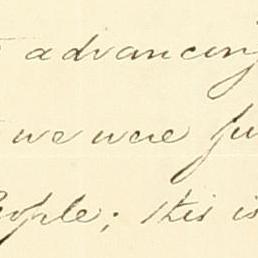 advancing
we were fu
eople; this is